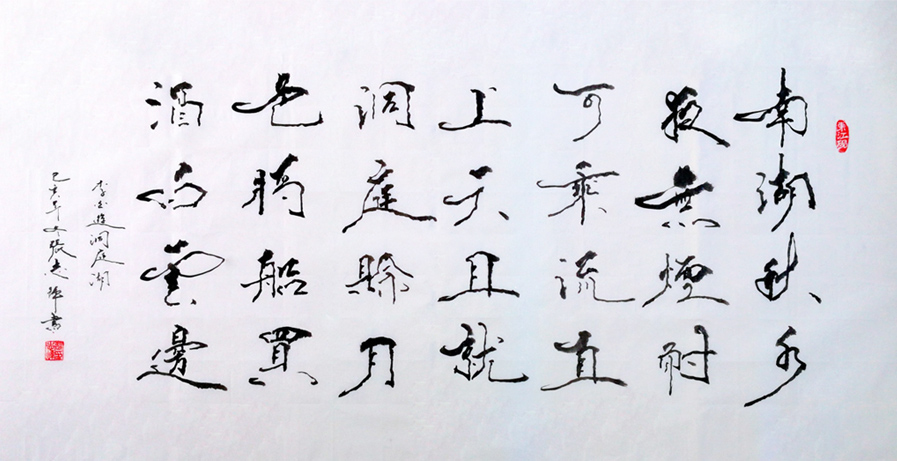 南湖秋水
夜無煙耐
可乘流直
上天且就
洞庭賒月
色將船買
酒白雲邊
李白遊洞庭湖
己亥年張志書